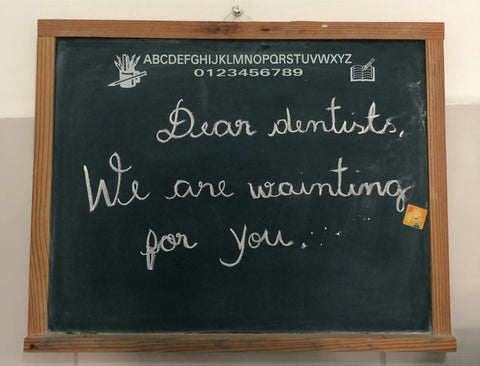 ABCDEFGHIJKLMNOPQRSTUVWXYZ
0123456789
Dear dentists,
We are wainting
for you...